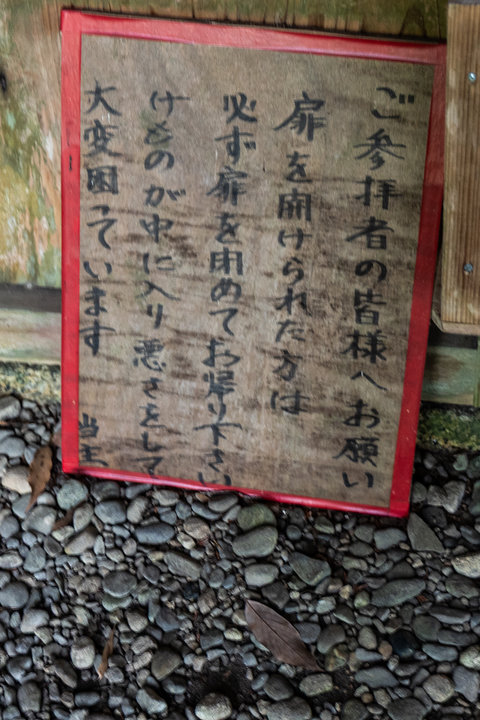 ご参拝者の皆様へお願い
扉を開けられた方は
必ず扉を閉めてお帰り下さい
けものが中に入り悪さをして
大変困っています
当主